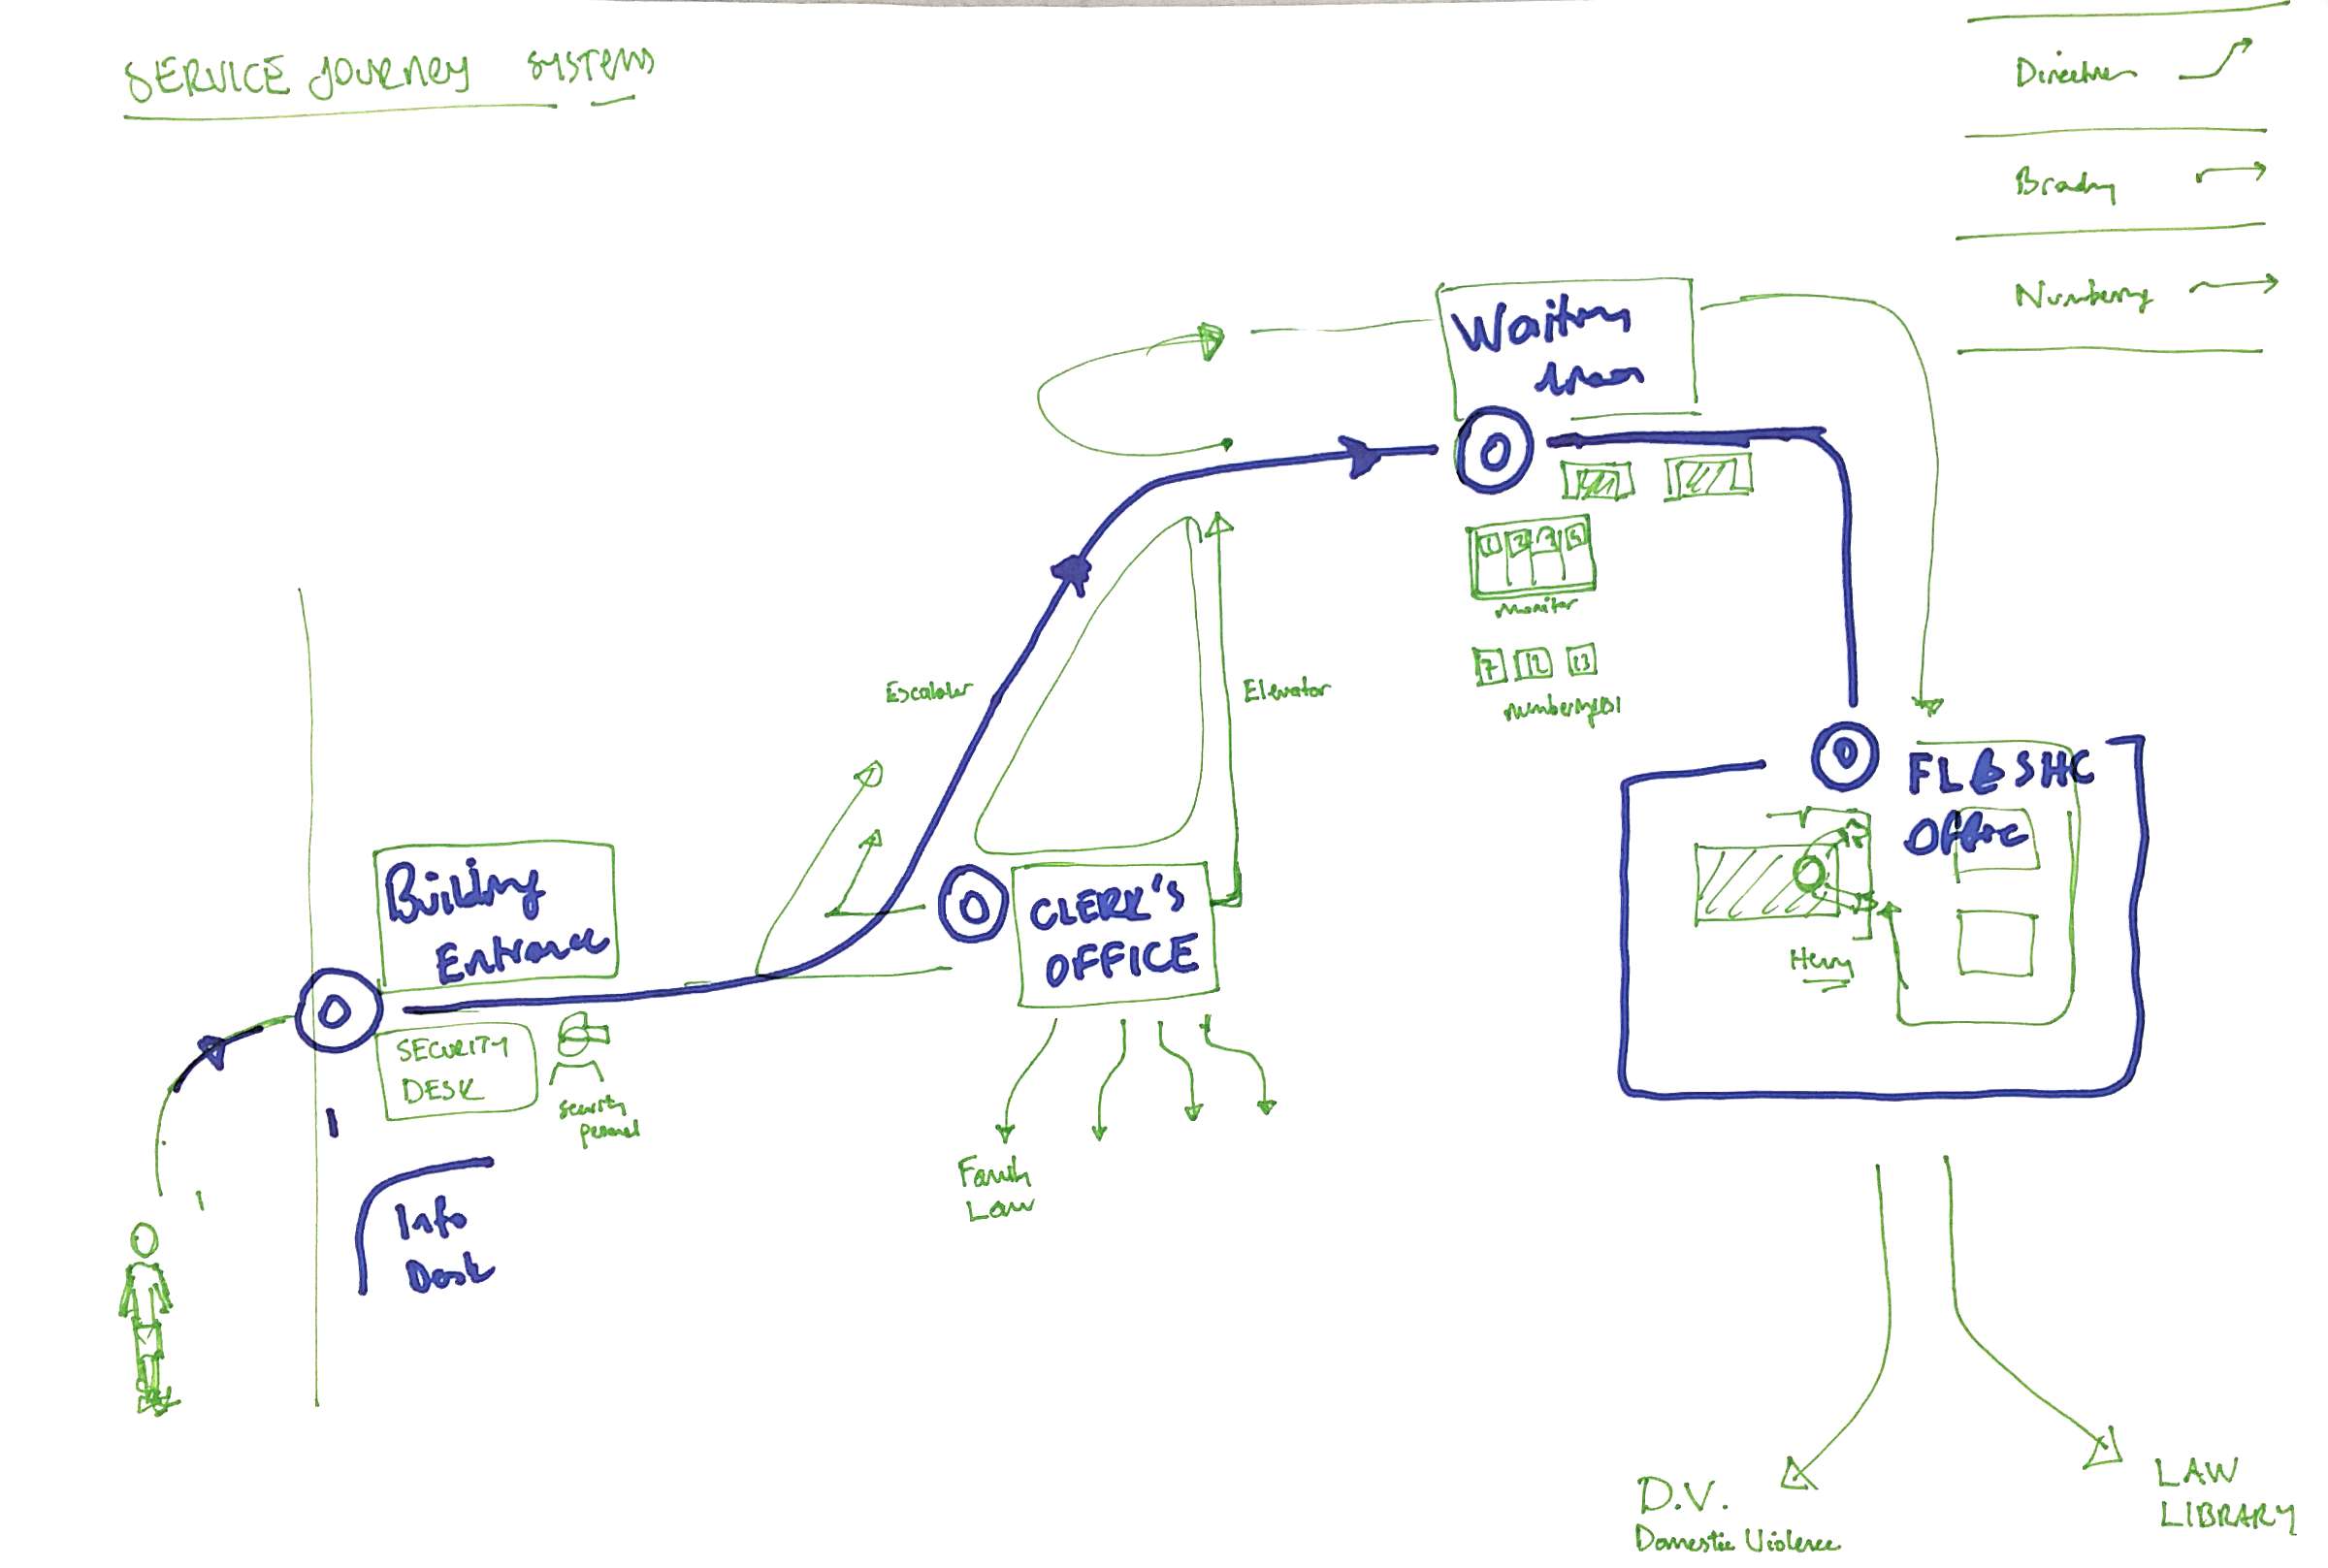 SERVICE JOURNEY SYSTEMS
Direction
Numbering
Waiting
Area
1 2 3 4
Monitor
7 12 13
Escalator
Elevator
FLASHC
Office
Henry
Building
Entrance
CLERK'S
OFFICE
SECURITY
DESK
Security
personnel
Info
Desk
Family
Law
D.V.
Domestic Violence
LAW
LIBRARY